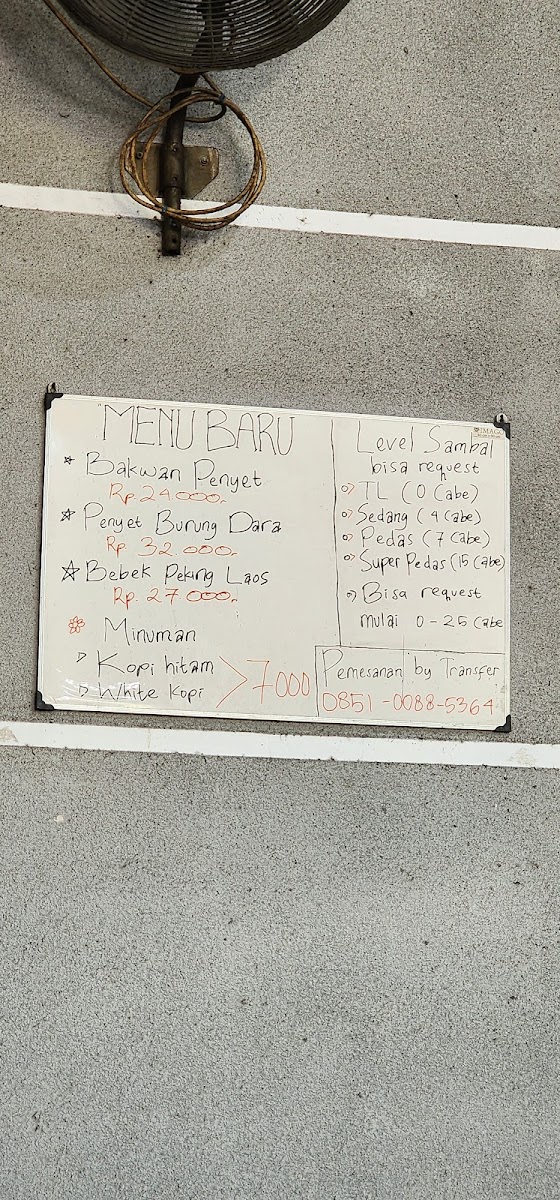 "MENU BARU
Bakwan Penyet
Rp. 24000,-
Penyet Burung Dara
Rp. 32.000,-
Bebek Peking Laos
Rp. 27000,-
Minuman
Kopi hitam
White Kopi
> 7000
IMAGO
Level Sambal
bisa request
TL (0 Cabe)
Sedang (4 Cabe)
Pedas (7 Cabe)
Super Pedas (15 Cabe)
Bisa request
mulai 0-25 Cabe
Pemesanan by Transfer
0851-0088-5364